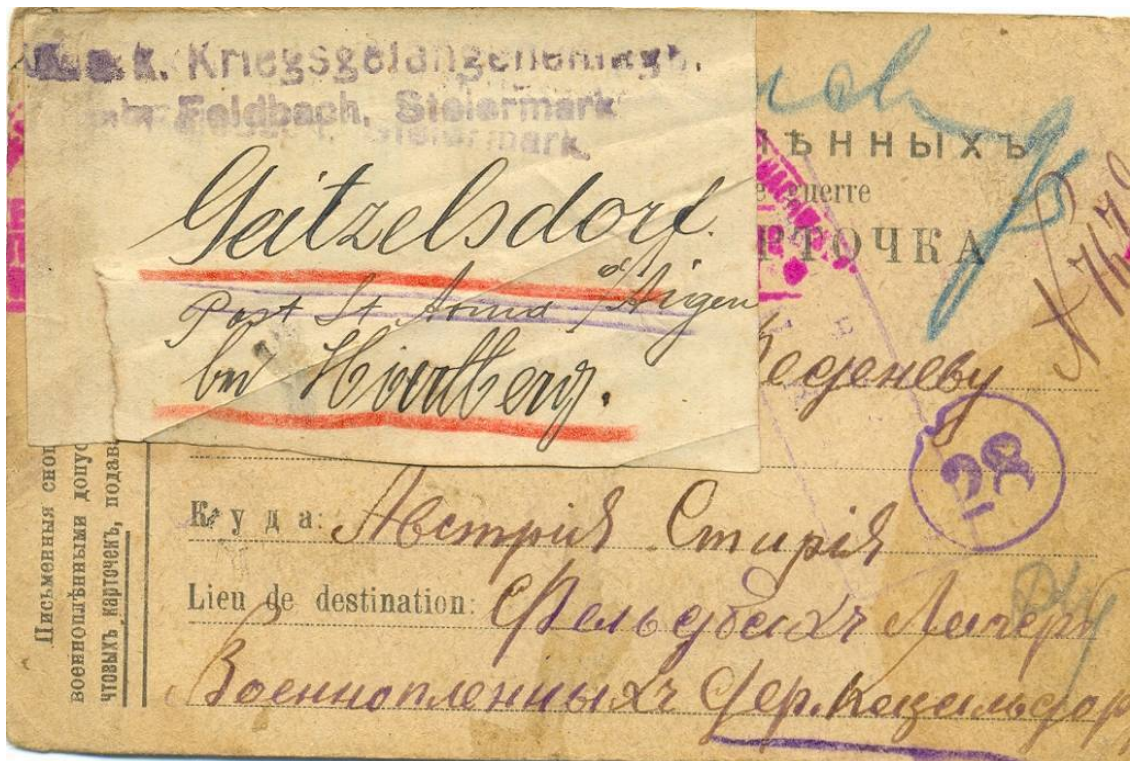 K. u. k. Kriegsgefangenenlager
Feldbach, Steiermark
Steiermark
Geitzelsdorf.
Post St Anna a/Aigen
bei Hartberg.
ѢННЫХЪ
guerre
РТОЧКА
N 7679
28
Куда: Австрія Стирія
Lieu de destination: Фельдбахъ Лагерь
Военнопленныхъ Дер. Кецельсдорф
Письменныя снош
военноплѣнными допус
чтовыхъ карточекъ, подав